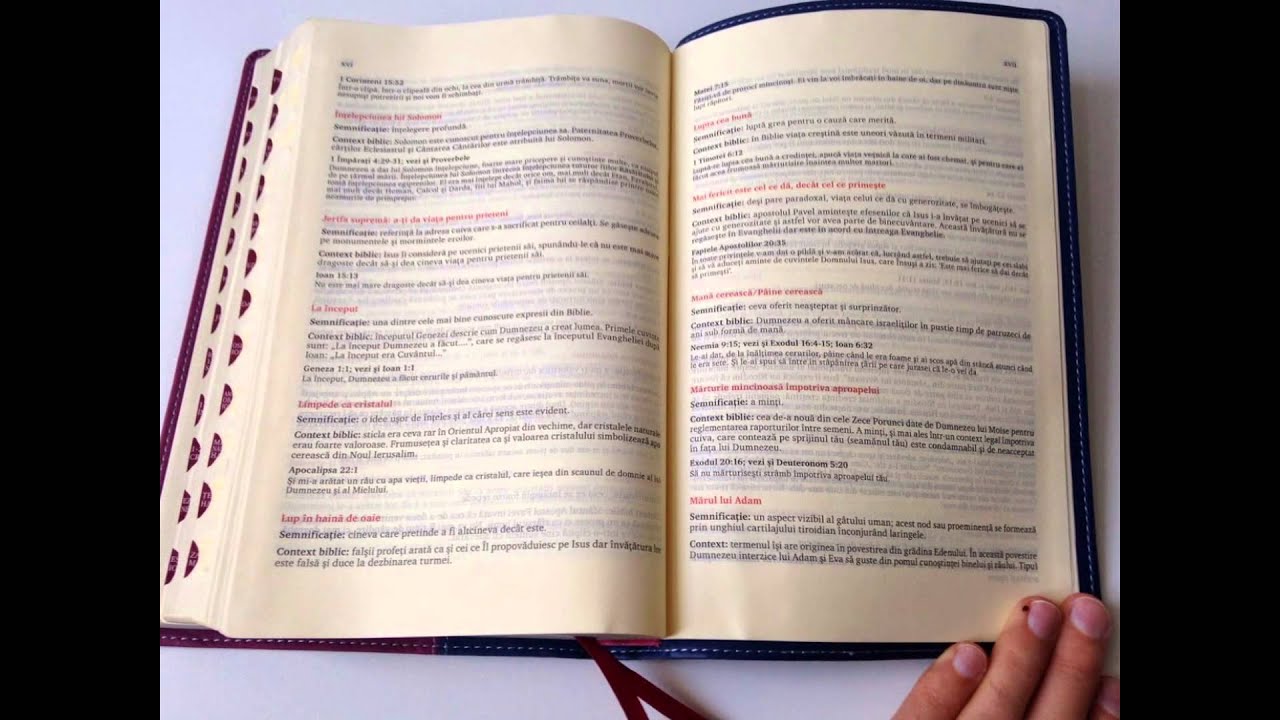 xvi
1 Corinteni 15:52
Într-o clipă, într-o clipeală din ochi, la cea din urmă trâmbiță. Trâmbița va suna, morții vor învia
nesupuși putrezirii și noi vom fi schimbați.
Înțelepciunea lui Solomon
Semnificație: înțelegere profundă.
Context biblic: Solomon este cunoscut pentru înțelepciunea sa. Paternitatea Proverbelor,
cărților Eclesiastul și Cântarea Cântărilor este atribuită lui Solomon.
1 Împărați 4:29-31; vezi și Proverbele
Dumnezeu a dat lui Solomon înțelepciune, foarte mare pricepere și cunoștințe multe, ca nisipul
de pe țărmul mării. Înțelepciunea lui Solomon întrecea înțelepciunea tuturor fiilor Răsăritului și
toată înțelepciunea egiptenilor. El era mai înțelept decât orice om, mai mult decât Etan, Ezrahitul,
mai mult decât Heman, Calcol și Darda, fiii lui Mahol, și faima lui se răspândise printre toate
neamurile de primprejur.
Jertfa supremă: a-ți da viața pentru prieteni
Semnificație: referință la adresa cuiva care s-a sacrificat pentru ceilalți. Se găsește adesea
pe monumentele și mormintele eroilor.
Context biblic: Isus îi consideră pe ucenici prietenii săi, spunându-le că nu este mai mare
dragoste decât să-și dea cineva viața pentru prietenii săi.
Ioan 15:13
Nu este mai mare dragoste decât să-și dea cineva viața pentru prietenii săi.
La început
Semnificație: una dintre cele mai bine cunoscute expresii din Biblie.
Context biblic: începutul Genezei descrie cum Dumnezeu a creat lumea. Primele cuvinte
sunt: „La început Dumnezeu a făcut....”, care se regăsesc la începutul Evangheliei după
Ioan: „La început era Cuvântul...”
Geneza 1:1; vezi și Ioan 1:1
La început, Dumnezeu a făcut cerurile și pământul.
Limpede ca cristalul
Semnificație: o idee ușor de înțeles și al cărei sens este evident.
Context biblic: sticla era ceva rar în Orientul Apropiat din vechime, dar cristalele naturale
erau foarte valoroase. Frumusețea și claritatea ca și valoarea cristalului simbolizează apa
cerească din Noul Ierusalim.
Apocalipsa 22:1
Și mi-a arătat un râu cu apa vieții, limpede ca cristalul, care ieșea din scaunul de domnie al lui
Dumnezeu și al Mielului.
Lup în haină de oaie
Semnificație: cineva care pretinde a fi altcineva decât este.
Context biblic: falșii profeți arată ca și cei ce Îl propovăduiesc pe Isus dar învățătura lor
este falsă și duce la dezbinarea turmei.
xvii
Matei 7:15
Păziți-vă de proroci mincinoși. Ei vin la voi îmbrăcați în haine de oi, dar pe dinăuntru sunt niște
lupi răpitori.
Lupta cea bună
Semnificație: luptă grea pentru o cauză care merită.
Context biblic: în Biblie viața creștină este uneori văzută în termeni militari.
1 Timotei 6:12
Luptă-te lupta cea bună a credinței, apucă viața veșnică la care ai fost chemat, și pentru care ai
făcut acea frumoasă mărturisire înaintea multor martori.
Mai fericit este cel ce dă, decât cel ce primește
Semnificație: deși pare paradoxal, viața celui ce dă cu generozitate, se îmbogățește.
Context biblic: apostolul Pavel amintește efesenilor că Isus i-a învățat pe ucenici să se
ajute cu generozitate și astfel vor avea parte de binecuvântare. Această învățătură nu se
regăsește în Evanghelii dar este în acord cu întreaga Evanghelie.
Faptele Apostolilor 20:35
În toate privințele v-am dat o pildă și v-am arătat că, lucrând astfel, trebuie să ajutați pe cei slabi
și să vă aduceți aminte de cuvintele Domnului Isus, care însuși a zis: 'Este mai ferice să dai decât
să primești'.
Mană cerească/Pâine cerească
Semnificație: ceva oferit neașteptat și surprinzător.
Context biblic: Dumnezeu a oferit mâncare israeliților în pustie timp de patruzeci de
ani sub formă de mană.
Neemia 9:15; vezi și Exodul 16:4-15; Ioan 6:32
Le-ai dat, de la înălțimea cerurilor, pâine când le era foame și ai scos apă din stâncă atunci când
le era sete. Și le-ai spus să intre în stăpânirea țării pe care juraseî că le-o vei da.
Mărturie mincinoasă împotriva aproapelui
Semnificație: a minți.
Context biblic: cea de-a nouă din cele Zece Porunci date de Dumnezeu lui Moise pentru
reglementarea raporturilor între semeni. A minți, și mai ales într-un context legal împotriva
cuiva, care contează pe sprijinul tău (seamănul tău) este condamnabil și de neacceptat
în fața lui Dumnezeu.
Exodul 20:16; vezi și Deuteronom 5:20
Să nu mărturisești strâmb împotriva aproapelui tău.
Mărul lui Adam
Semnificație: un aspect vizibil al gâtului uman; acest nod sau proeminență se formează
prin unghiul cartilajului tiroidian înconjurând laringele.
Context: termenul își are originea în povestirea din grădina Edenului. În această povestire
Dumnezeu interzice lui Adam și Eva să guste din pomul cunoștinței binelui și răului. Tipul